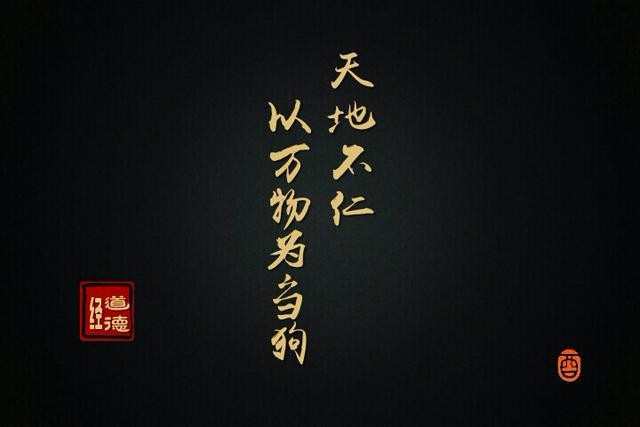 天地不仁
以万物为刍狗
道德
经
酉